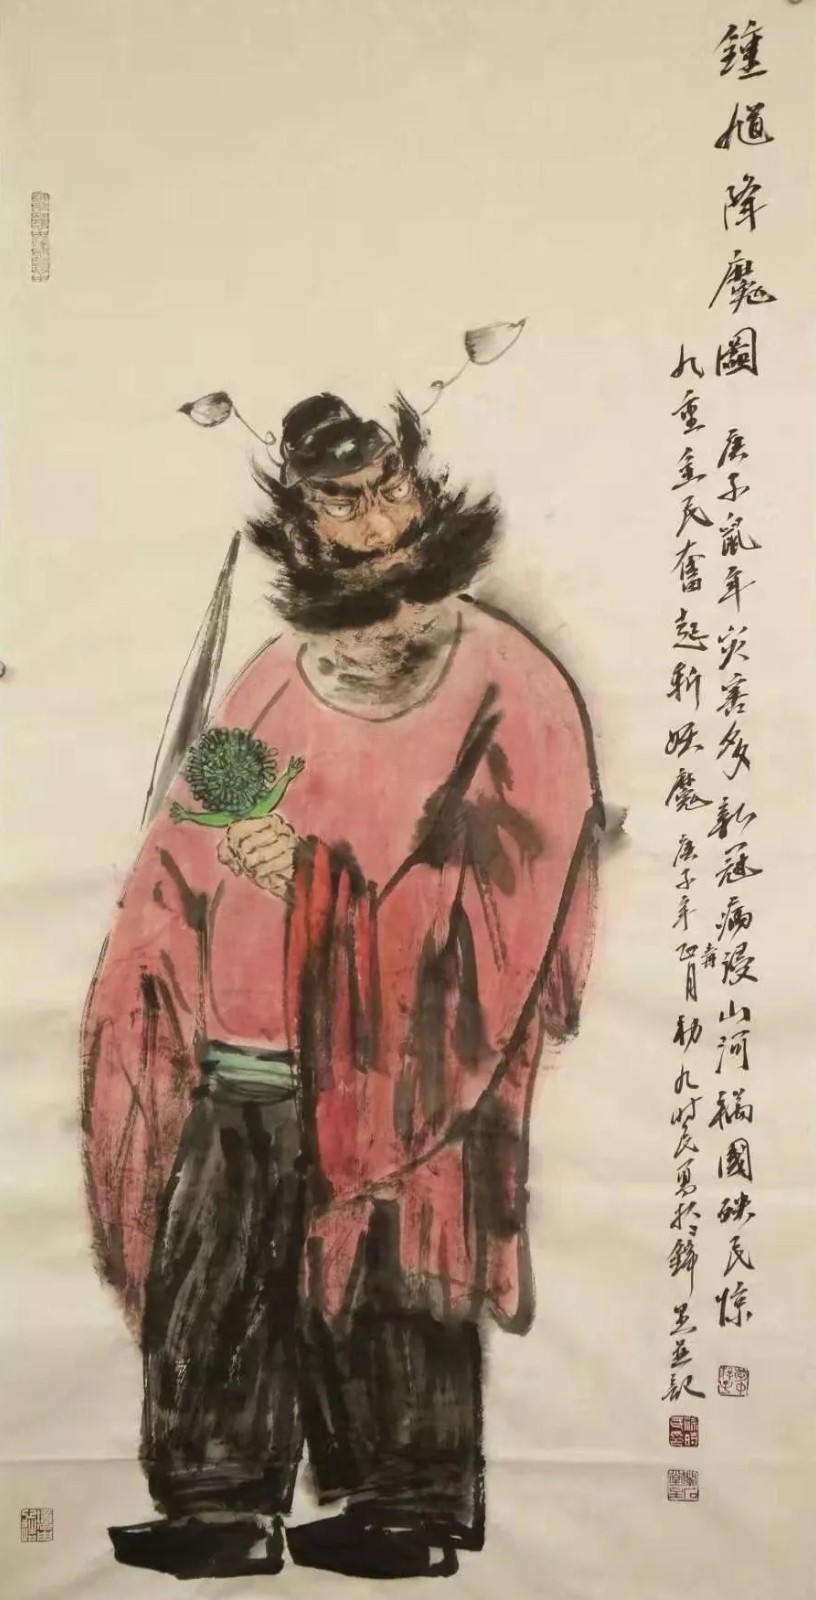 鍾馗降魔圖 庚子鼠年災害多新冠病毒漫山河禍國殃民惊
九重全民奮起斬妖魔 庚子年正月初九时民写於